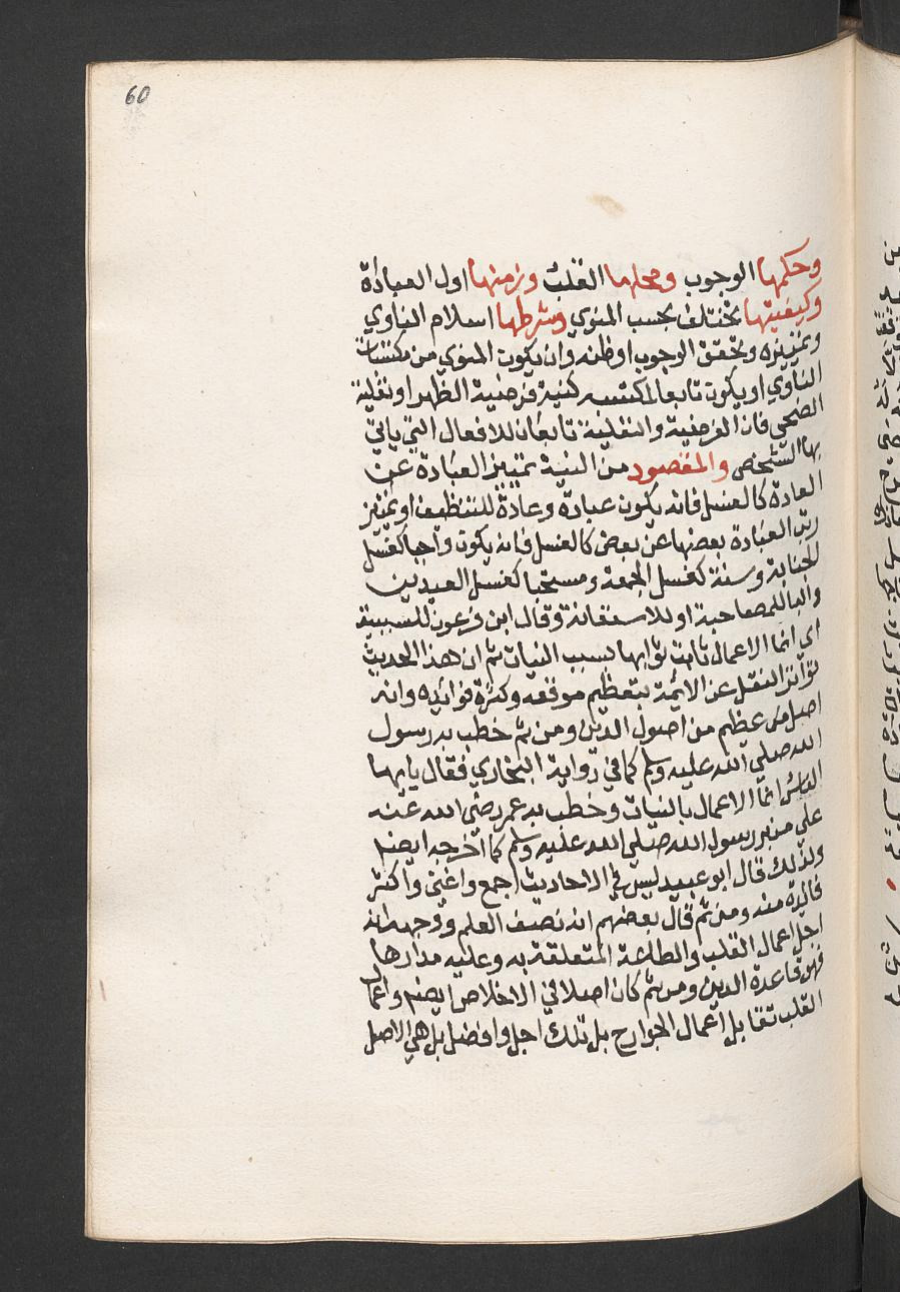 60
وحكمها الوجوب ومحلها القلب وزمنها اول العبادة
وكيفيتها تختلف بحسب المنوي وشرطها اسلام الناوي
وتمييزه وتحقق الوجوب اوظنه وان يكون المنوي من مكتسبات
الناوي او يكون تابعا لمكتسبه كنية فرضية الظهر او نفلية
الضحي فان الفرضية والنفلية تابعان للافعال التي ياتي
بها الشخص والمقصود من النية تمييز العبادة عن
العادة كالغسل فانه يكون عبادة وعادة للتنظيف او تمييز
رتب العبادة بعضها عن بعض كالغسل فانه يكون واجبا كغسل
الجنابة وسنة كغسل الجمعة ومستحبا كغسل العيدين
والبا للمصاحبة او للاستعانة وقال ابن فرعون للسببية
اي انما الاعمال ثابت ثوابها بسبب النيات ثم ان هذا الحديث
تواتر النقل عن الائمة بتعظيم موقعه وكثرة فوائده وانه
اصل عظيم من اصول الدين ومن ثم خطب به رسول
الله صلي الله عليه وسلم كما في رواية البخاري فقال يايها
الناس انما الاعمال بالنيات وخطب به عمر رضي الله عنه
علي منبر رسول الله صلي الله عليه وسلم كما اخرجه ايضا
ولذلك قال ابو عبيد ليس في الاحاديث اجمع واغني واكثر
فائدة منه ومن ثم قال بعضهم انه نصف العلم ووجهه انه
اجل اعمال القلب والطاعة المتعلقة به وعليه مدارها
فهو قاعدة الدين ومن ثم كان اصلا في الاخلاص ايضا واعمال
القلب تقابل اعمال الجوارح بل تلك اجل وافضل بل هي الاصل